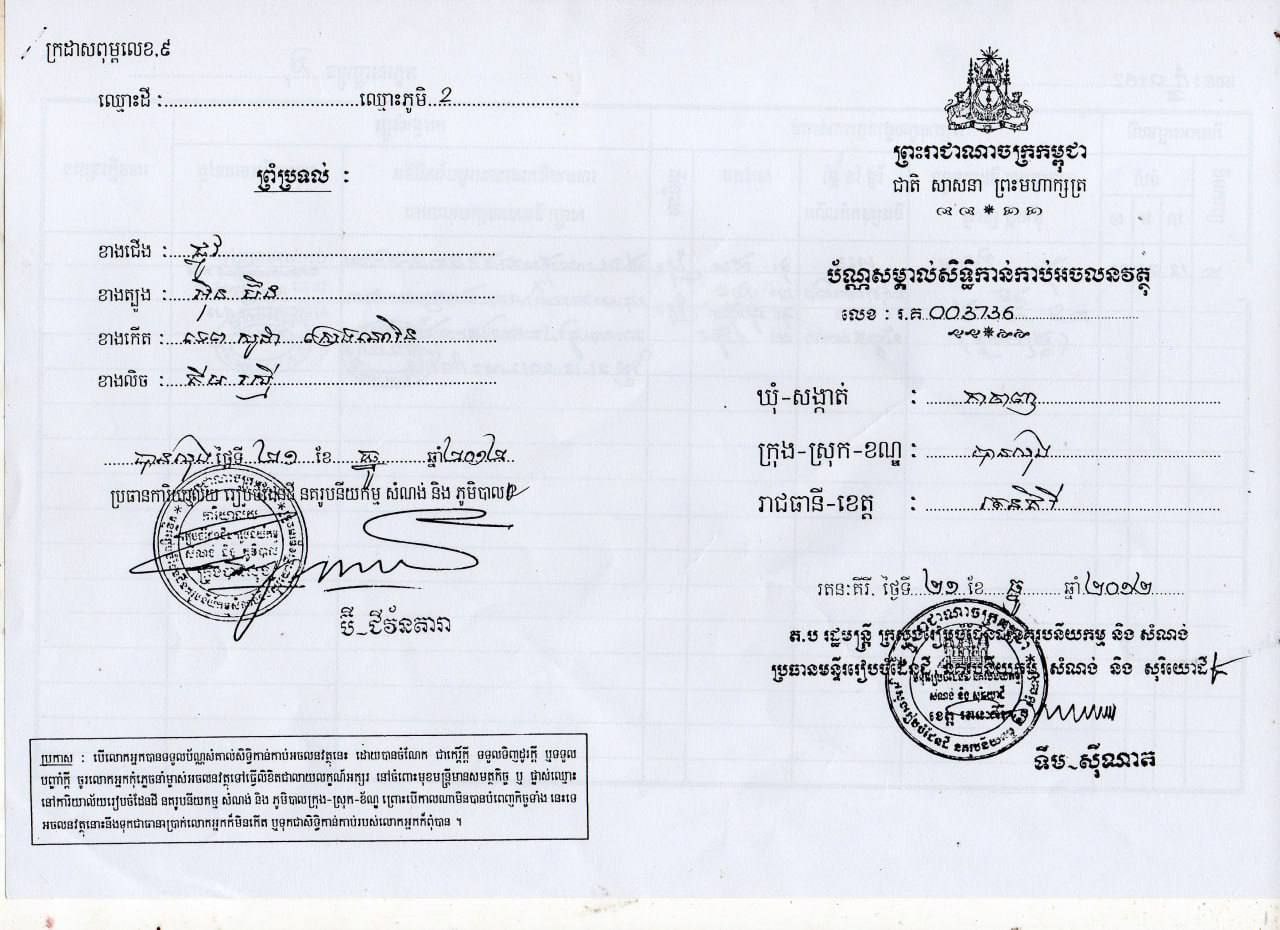 ក្រដាសពុម្ពលេខ.៩
ឈ្មោះដី :........ឈ្មោះភូមិ..2........
ព្រំប្រទល់ :
ខាងជើង : ផ្លូវ
ខាងត្បូង :
ខាងកើត : ទេព
ខាងលិច :
បានលុង ថ្ងៃទី ២១ ខែ ធ្នូ ឆ្នាំ២០១២
ប្រធានការិយាល័យ រៀបចំដែនដី នគរូបនីយកម្ម សំណង់ និង ភូមិបាល
ប៊ី-ជីវ័នតារា
ប្រកាស : បើលោកអ្នកបានទទួលប័ណ្ណសំគាល់សិទ្ធិកាន់កាប់អចលនវត្ថុនេះ ដោយបានចំណែក ជាក្តើក្តី ទទួលទិញដូរក្តី ឬទទួល
បញ្ចាំក្តី ចូរលោកអ្នកកុំភ្លេចនាំម្ចាស់អចលនវត្ថុទៅធ្វើលិខិតជាលាយលក្ខណ៍អក្សរ នៅចំពោះមុខមន្ត្រីមានសមត្ថកិច្ច ឬ ផ្លាស់ឈ្មោះ
នៅការិយាល័យរៀបចំដែនដី នគរូបនីយកម្ម សំណង់ និង ភូមិបាលក្រុង-ស្រុក-ខ័ណ្ឌ ព្រោះបើកាលណាមិនបានបំពេញកិច្ចទាំង នេះទេ
អចលនវត្ថុនោះនឹងទុកជាធានាប្រាក់លោកអ្នកក៏មិនកើត ឬទុកជាសិទ្ធិកាន់កាប់របស់លោកអ្នកក៏ពុំបាន ។
ព្រះរាជាណាចក្រកម្ពុជា
ជាតិ សាសនា ព្រះមហាក្សត្រ
ប័ណ្ណសម្គាល់សិទ្ធិកាន់កាប់អចលនវត្ថុ
លេខ : រ.គ.003736
ឃុំ-សង្កាត់ : កាចាញ
ក្រុង-ស្រុក-ខណ្ឌ : បានលុង
រាជធានី-ខេត្ត : រតនគិរី
រតនៈគីរី. ថ្ងៃទី ២១ ខែ ធ្នូ ឆ្នាំ ២០១២
ត.ប រដ្ឋមន្ត្រី ក្រសួងរៀបចំដែនដី នគរូបនីយកម្ម និង សំណង់
ប្រធានមន្ទីររៀបចំដែនដី នគរូបនីយកម្ម សំណង់ និង សុរិយោដី
ទឹម-ស៊ីណាត